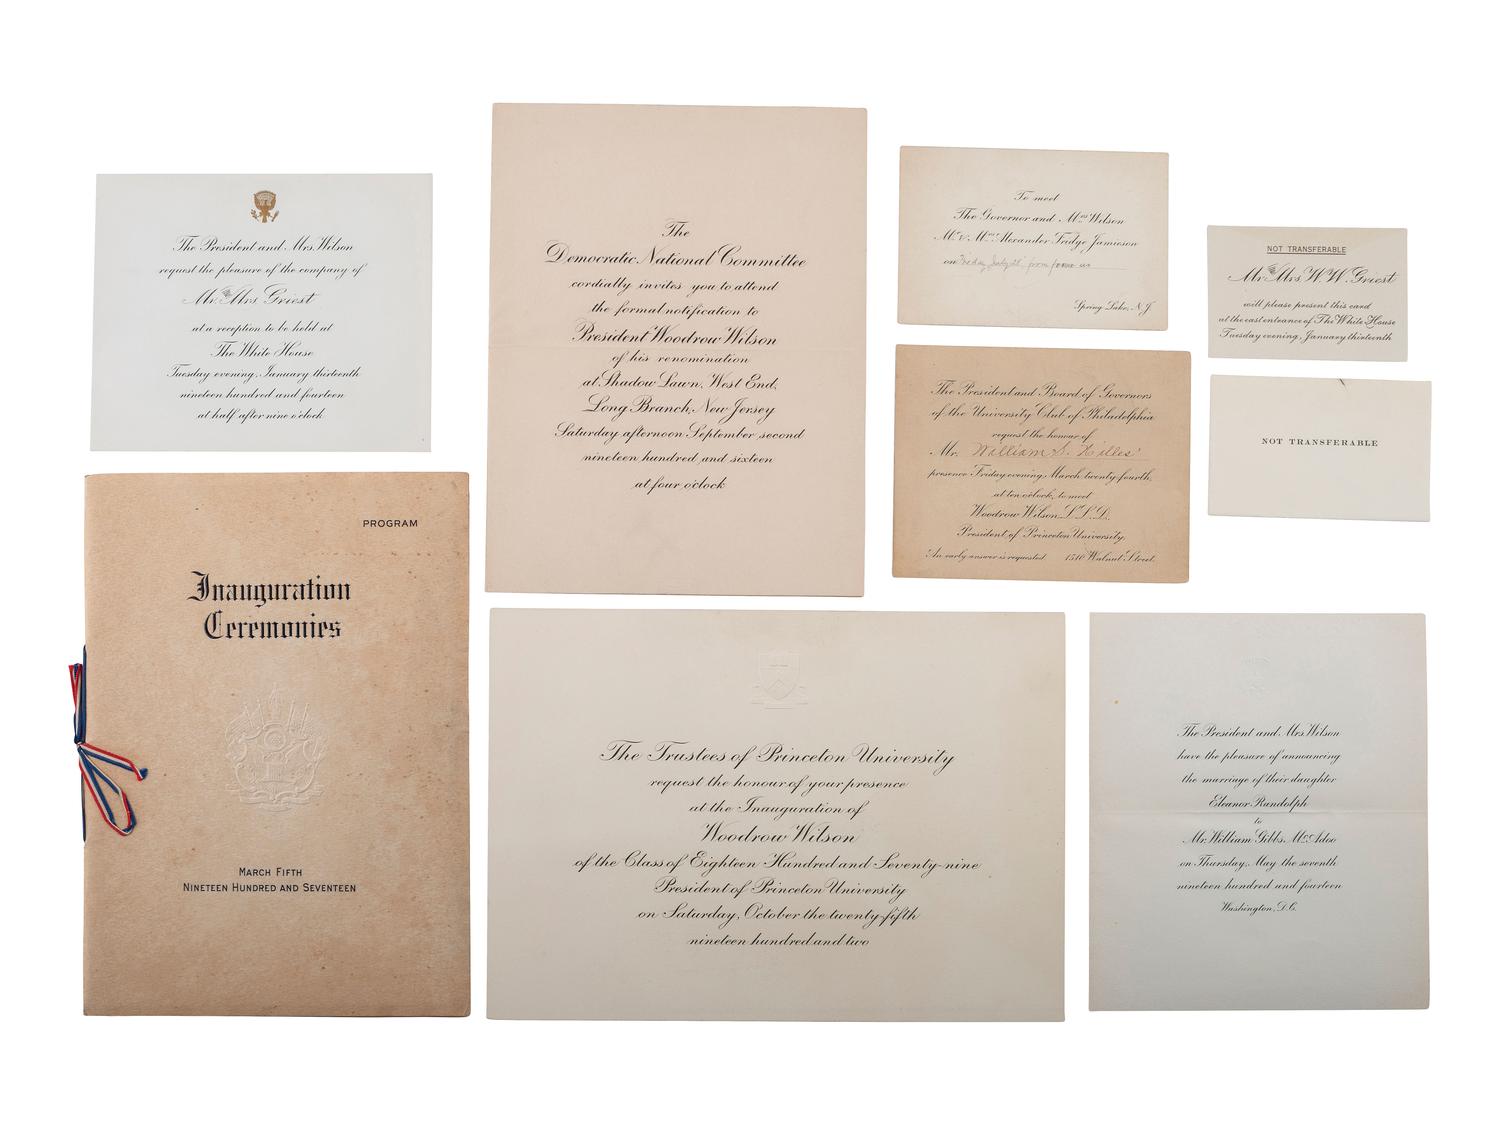 The President and Mrs. Wilson
request the pleasure of the company of
Mr. & Mrs. Griest
at a reception to be held at
The White House
Tuesday evening, January thirteenth
nineteen hundred and fourteen
at half after nine o'clock
PROGRAM
Inauguration
Ceremonies
MARCH FIFTH
NINETEEN HUNDRED AND SEVENTEEN
The
Democratic National Committee
cordially invites you to attend
the formal notification to
President Woodrow Wilson
of his renomination
at Shadow Lawn, West End,
Long Branch, New Jersey
Saturday afternoon September second
nineteen hundred and sixteen
at four o'clock
To meet
The Governor and Mrs. Wilson
Mr. & Mrs. Alexander Fridge Jamieson
on from
Spring Lake, N.J.
NOT TRANSFERABLE
Mr. & Mrs. W. W. Griest
will please present this card
at the east entrance of The White House
Tuesday evening, January thirteenth
The President and Board of Governors
of the University Club of Philadelphia
request the honour of
Mr. William S. Hilles'
presence Friday evening, March twenty-fourth,
at ten o'clock, to meet
Woodrow Wilson L.L.D.
President of Princeton University.
An early answer is requested. 1510 Walnut Street.
NOT TRANSFERABLE
The Trustees of Princeton University
request the honour of your presence
at the Inauguration of
Woodrow Wilson
of the Class of Eighteen Hundred and Seventy-nine
President of Princeton University
on Saturday, October the twenty-fifth
nineteen hundred and two
The President and Mrs. Wilson
have the pleasure of announcing
the marriage of their daughter
Eleanor Randolph
to
Mr. William Gibbs McAdoo
on Thursday, May the seventh
nineteen hundred and fourteen
Washington, D.C.